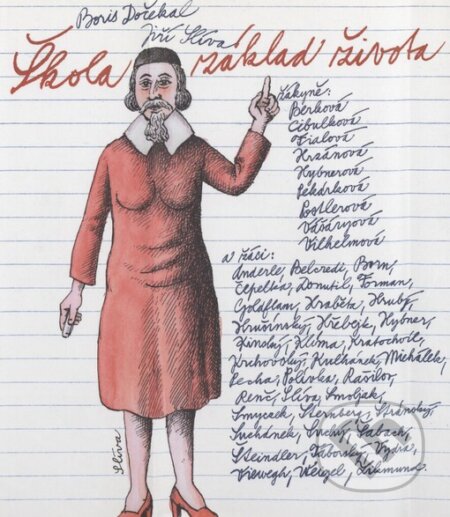 Boris Dočekal
Jiří Slíva
Škola základ života
žákyně:
Berková
Cibulková
Fialová
Hrzánová
Hybnerová
Pekárková
Postlerová
Vášáryová
Vilhelmová
a žáci:
Anderle, Belcredi, Born,
Cepelka, Domutil, Forman,
Goldflam, Hraběta, Hrubý,
Hrušínský, Hřebejk, Hybner,
Kinský, Klíma, Kratochvíl,
Krchovský, Kulhánek, Michálek,
Pecha, Polívka, Rašilov,
Renč, Slíva, Smoljak,
Smyczek, Sternberg, Stránský,
Suchánek, Suchý, Šabach,
Steindler, Táborský, Vydra,
Viewegh, Weigel, Zikmund
Slíva